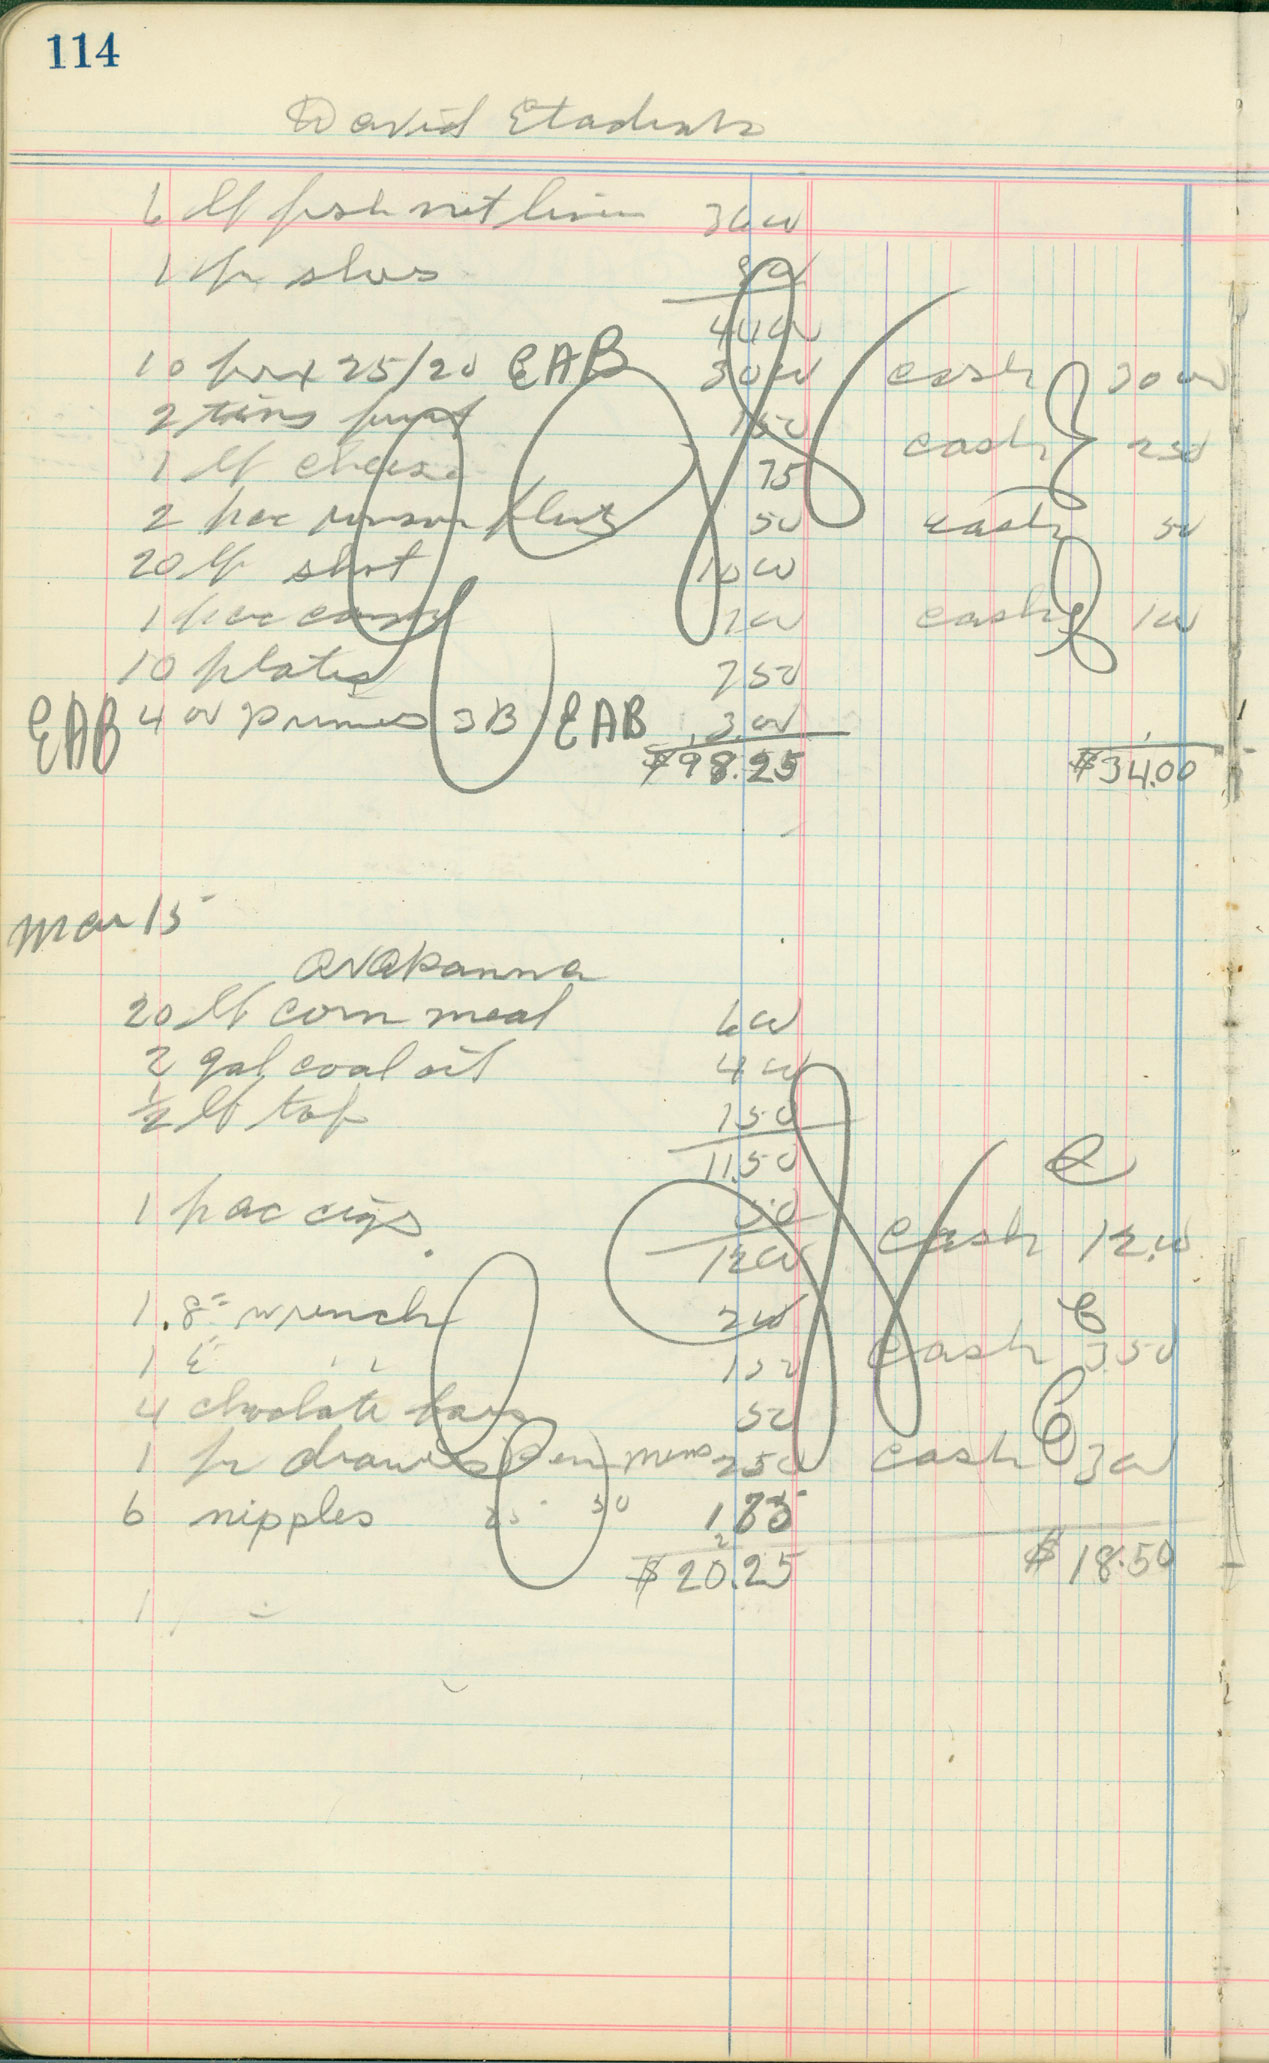 114
David
6 lb fish net 36 00
1 pr shoes 8 00
44 00
10 box 25/20 EAB 30 00 cash 30 00
2 tins fruit 1 50 cash 2 50
1 lb cheese 75
2 pac 50 cash 50
20 lb shot 10 00
1 pac 1 00 cash 1 00
10 plates 7 50
EAB 4 00 primers 3B EAB 3.00
$98.25 $34.00
Mar 15
avakanna
20 lb corn meal 6 00
2 gal coal oil 4 00
1/2 lb tob 1 50
11.50
1 pac cigs. 50 cash 12.00
12 00
1.8" wrench 2 00
1 6" " " 1 50 cash 3 50
4 choolate bars 50
1 pr drawers Pen mens 2 50 cash 3 00
6 nipples 25 30 1 85
$20.25 $18.50